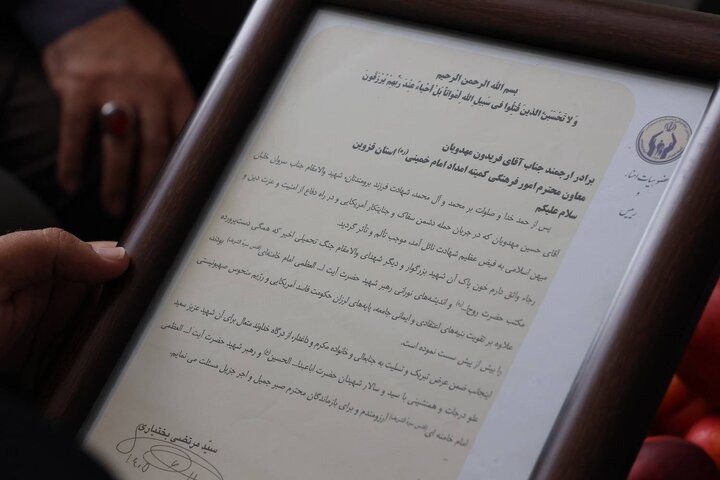 بسم الله الرحمن الرحیم
وَلا تَحْسَبَنَّ الَّذینَ قُتِلُوا فی سَبیلِ اللهِ اَمْواتاً بَلْ اَحْیاءٌ عِنْدَ رَبِّهِمْ یُرْزَقُونَ
برادر ارجمند جناب آقای فریدون مهدویان
معاون محترم امور فرهنگی کمیته امداد امام خمینی (ره) استان قزوین
سلام علیکم
پس از حمد خدا و صلوات بر محمد و آل محمد، شهادت فرزند برومندتان، شهید والامقام جناب سروان خلبان
آقای حسین مهدویان که در جریان حمله دشمن سفاک و جنایتکار آمریکایی و در راه دفاع از امنیت و عزت دین و
میهن اسلامی به فیض عظمای شهادت نائل آمد، موجب تألم و تأثر گردید.
رجاء واثق دارم خون پاک آن شهید بزرگوار و دیگر شهدای والامقام جنگ تحمیلی اخیر که همگی دست‌پرورده
مکتب حضرت روح‌الله (ره) و اندیشه‌های نورانی رهبر شهید حضرت آیت ا... العظمی امام خامنه‌ای بودند،
علاوه بر تقویت بنیه‌های اعتقادی و ایمانی جامعه، پایه‌های لرزان حکومت فاسد آمریکایی و رژیم منحوس صهیونیستی
را بیش از پیش سست نموده است.
اینجانب ضمن عرض تبریک و تسلیت به جنابعالی و خانواده مکرم و داغدار، از درگاه خداوند متعال برای آن شهید عزیز سعید
علو درجات و همنشینی با سید و سالار شهیدان حضرت اباعبدا... الحسین (ع) و رهبر شهید حضرت آیت ا... العظمی
امام خامنه ای آرزومندم و برای بازماندگان محترم صبر جمیل و اجر جزیل مسئلت می نمایم.
سیّد مرتضی بختیاری